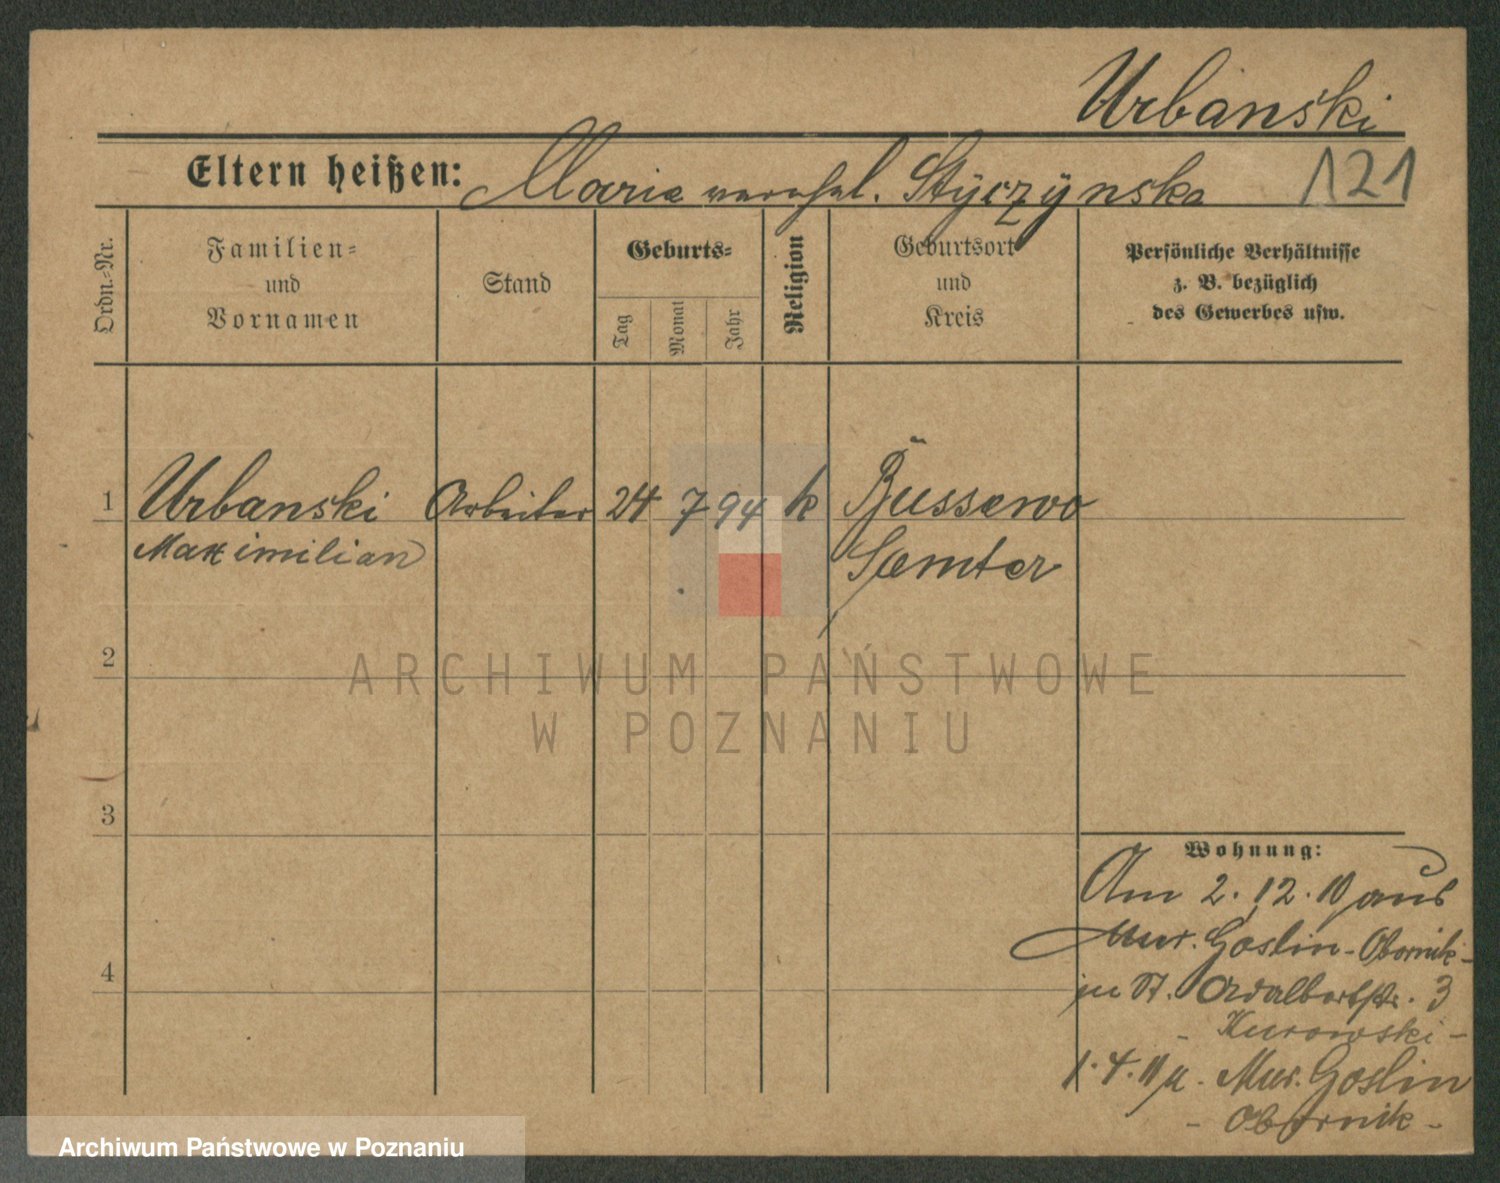 Urbanski
Eltern heißen: Maria verehel. Styczynska 121
Ordn.-Nr.
Familien- und Vornamen
Stand
Geburts-
Tag
Monat
Jahr
Religion
Geburtsort und Kreis
Persönliche Verhältnisse
z. B. bezüglich
des Gewerbes usw.
1 Urbanski Arbeiter 24 7 94 k Bussewo
Maximilian Samter
2
3
4
Wohnung:
Am 2. 12. 10 aus
Mur. Goslin - Obornik -
in St. Adalbertstr. 3
- Kurowski -
1. 4. 11 n. Mur. Goslin
- Obornik -
ARCHIWUM PAŃSTWOWE
W POZNANIU
Archiwum Państwowe w Poznaniu